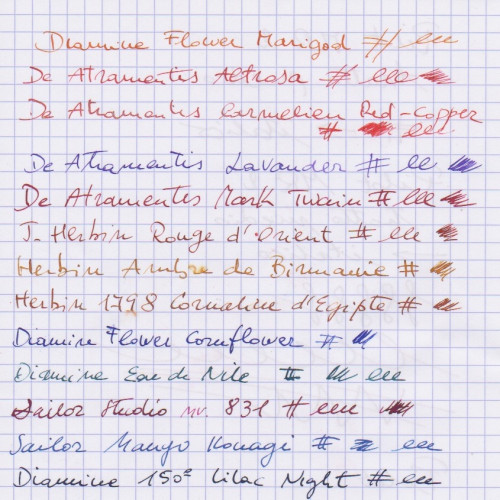 Diamine Flower Marigod #
De Atramentis Altrosa #
De Atramentis Carmelien Red-Copper
#
De Atramentis Lavander #
De Atramentis Mark Twain #
J. Herbin Rouge d'Orient #
Herbin Ambre de Birmanie #
Herbin 1798 Cornaline d'Egipte #
Diamine Flower Cornflower #
Diamine Eau de Nile #
Sailor Studio MV. 831 #
Sailor Manyo Konagi #
Diamine 150º Lilac Night #